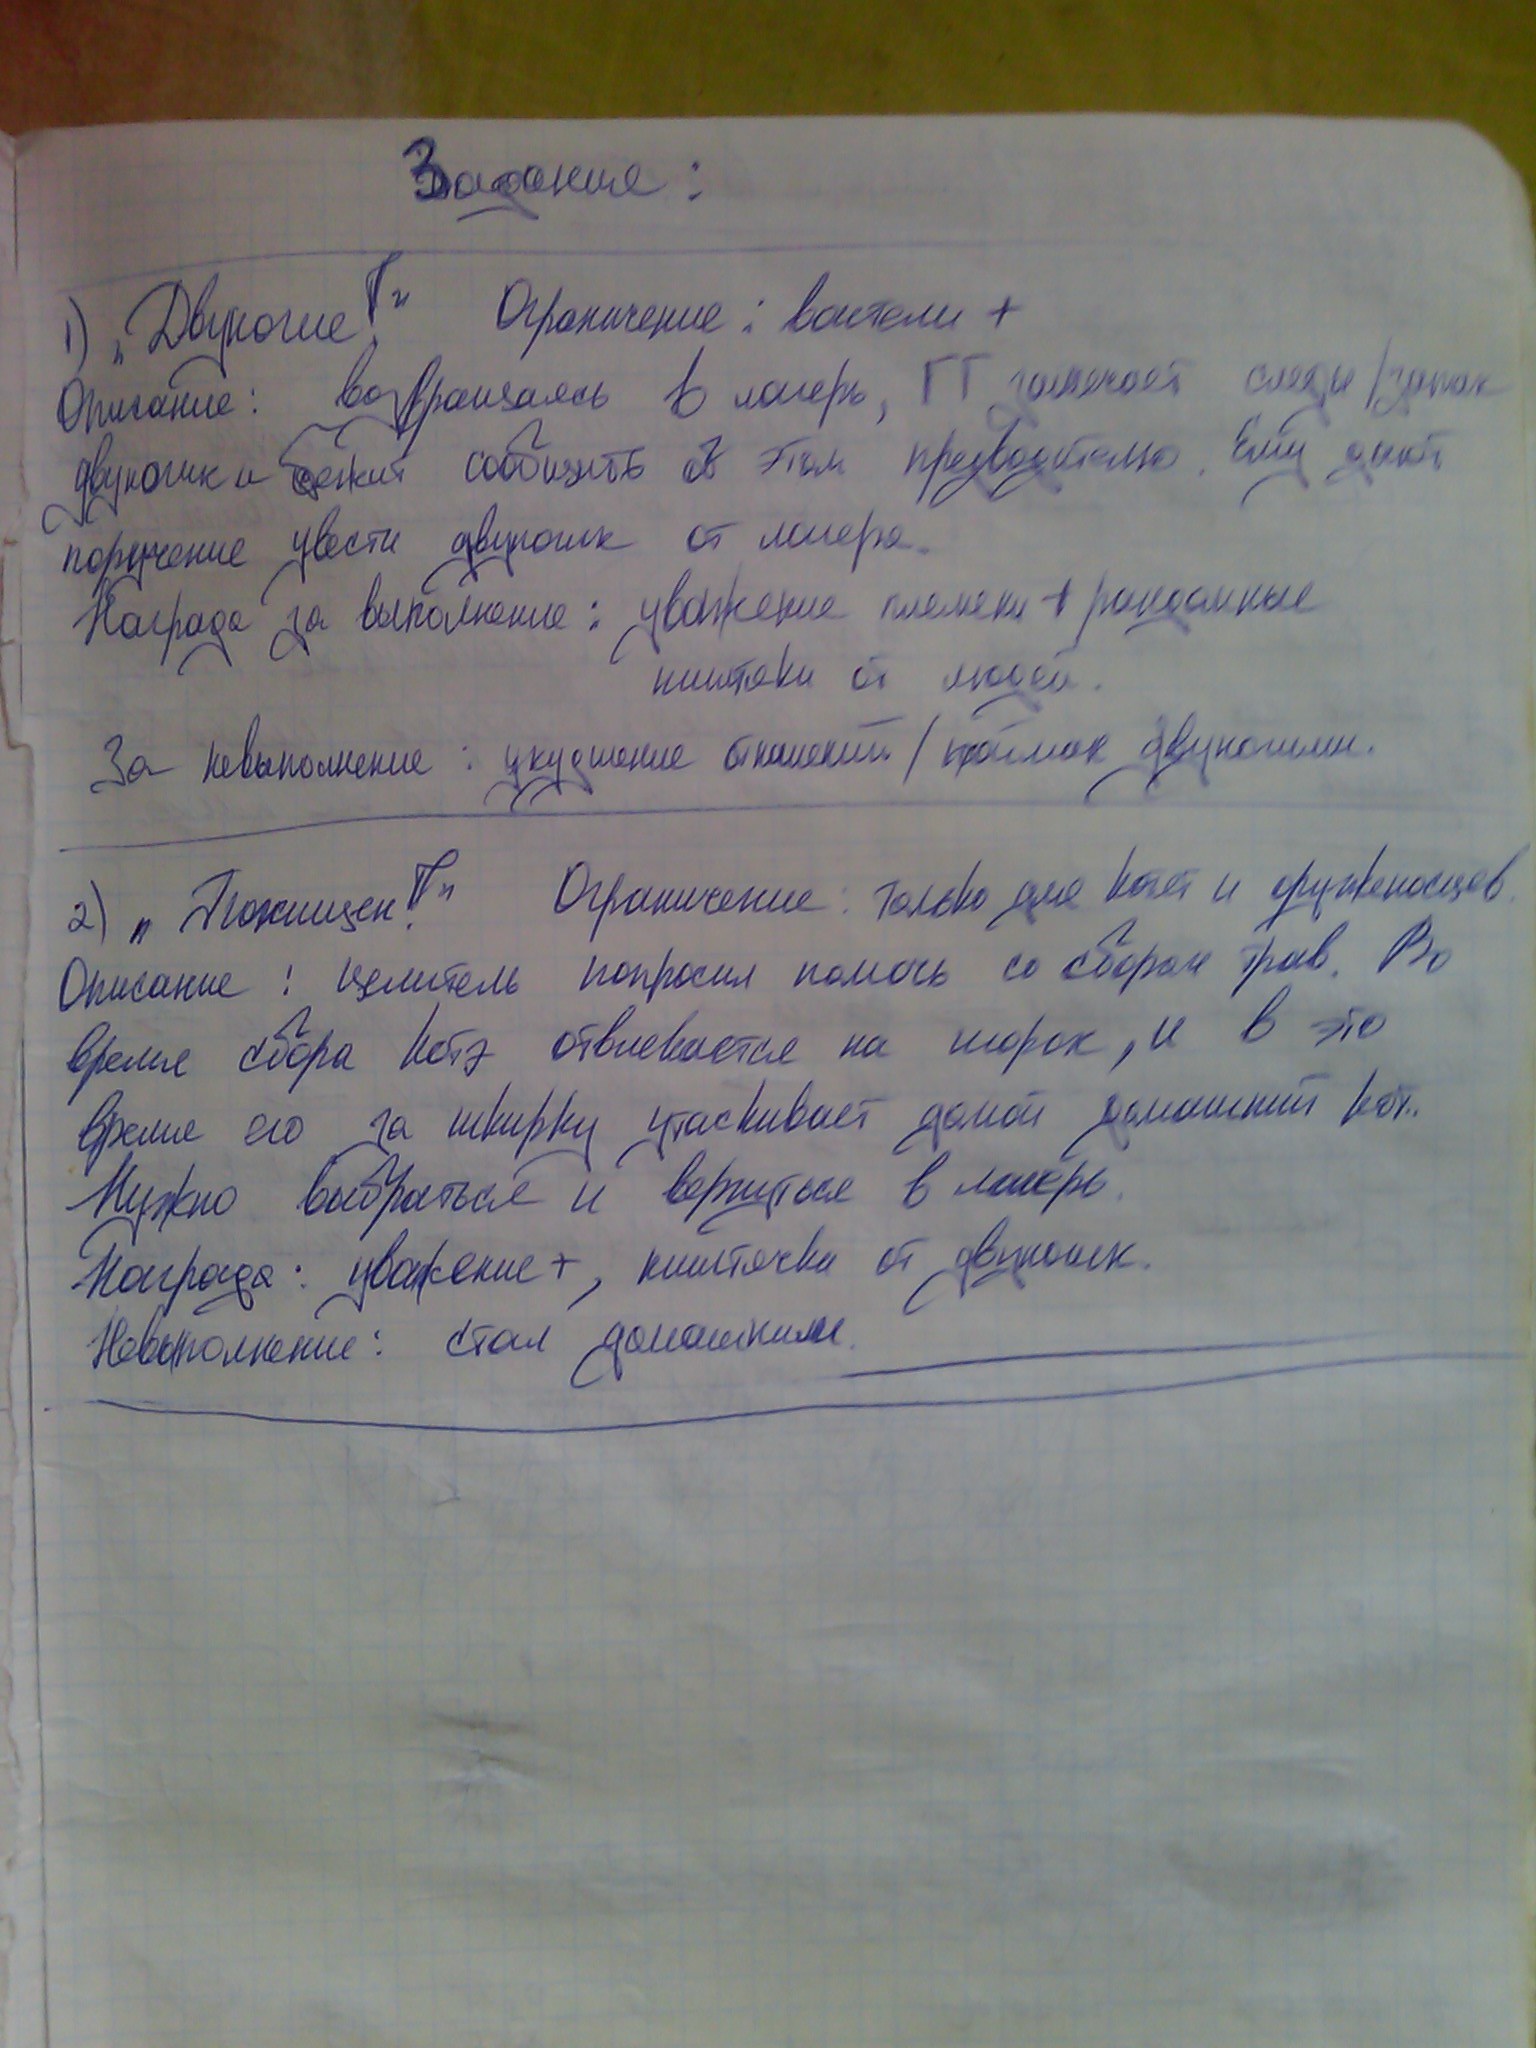 Задания:
1) „Двуногие!“ Ограничение: воители +
Описание: возвращаясь в лагерь, ГГ замечает следы/запах
двуногих и бежит сообщить об этом предводителю. Ему дают
поручение увести двуногих от лагеря.
Награда за выполнение: уважение племени + рандомные
ништяки от людей.
За невыполнение: ухудшение отношений/пойман двуногими.
2) „Похищен!“ Ограничение: только для котят и оруженосцев.
Описание: целитель попросил помочь со сбором трав. Во
время сбора котэ отвлекается на шорох, и в это
время его за шкирку утаскивает домой домашний кот.
Нужно выбраться и вернуться в лагерь.
Награда: уважение+, ништячки от двуногих.
Невыполнение: стал домашним.